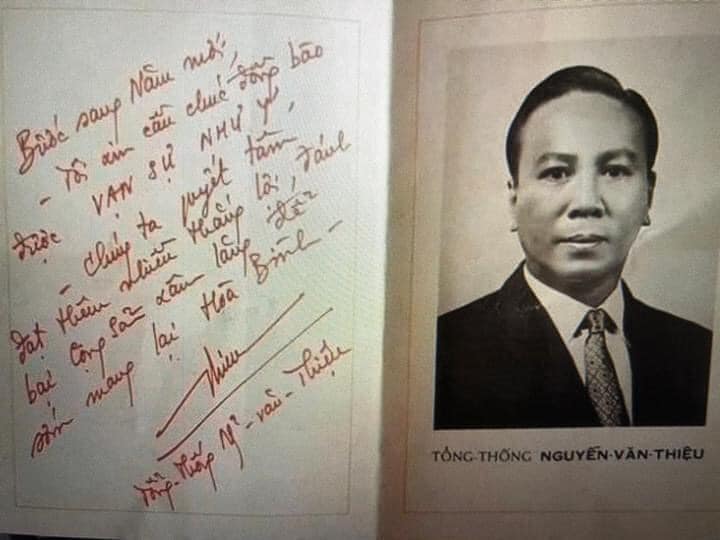 Bước sang Năm mới,
- Tôi xin cầu chúc đồng bào
được VẠN SỰ NHƯ Ý,
- Chúng ta quyết tâm
đạt thêm nhiều thắng lợi, đánh
bại Cộng Sản xâm lăng để
sớm mang lại Hòa Bình -
Thiệu
Tổng-Thống Ng~-văn-Thiệu
TỔNG-THỐNG NGUYỄN-VĂN-THIỆU